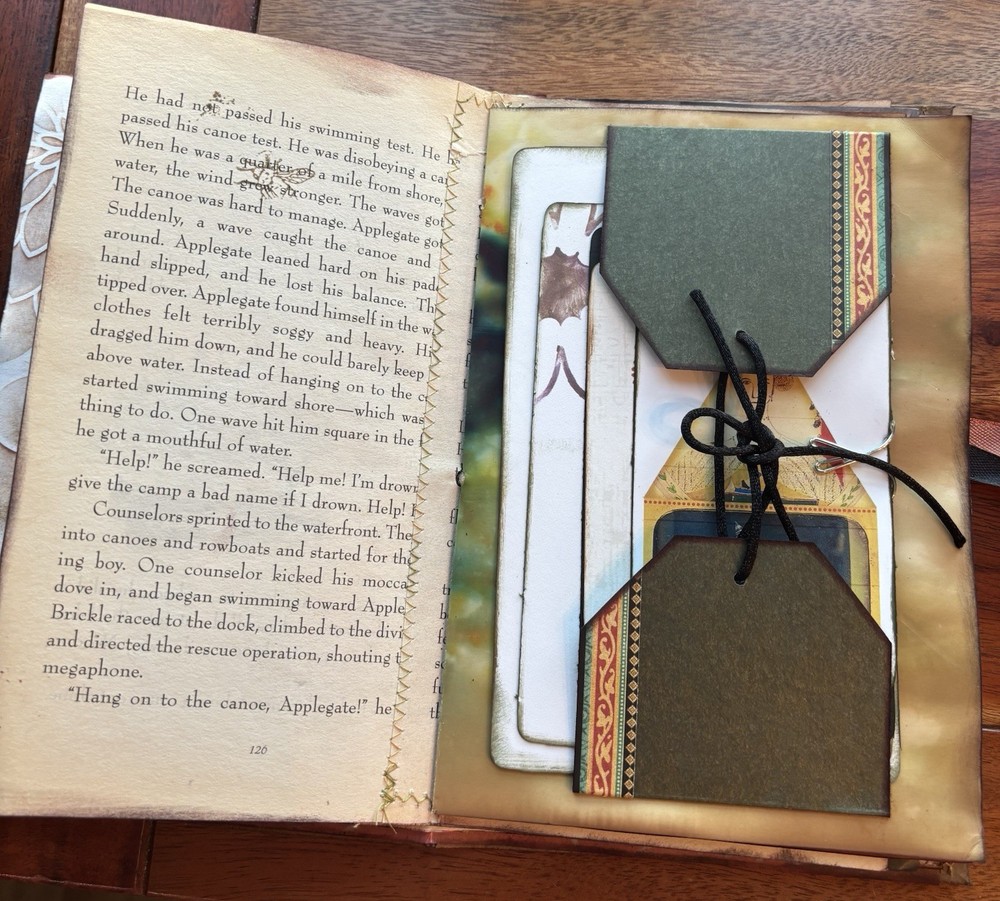 He had not passed his swimming test. He
passed his canoe test. He was disobeying a
When he was a quarter of a mile from shore,
water, the wind grew stronger. The waves got
The canoe was hard to manage. Applegate
Suddenly, a wave caught the canoe and
around. Applegate leaned hard on his
hand slipped, and he lost his balance.
tipped over. Applegate found himself in the
clothes felt terribly soggy and heavy.
dragged him down, and he could barely keep
above water. Instead of hanging on to the
started swimming toward shore—which was
thing to do. One wave hit him square in the
he got a mouthful of water.
"Help!" he screamed. "Help me! I'm
give the camp a bad name if I drown. Help!
Counselors sprinted to the waterfront. The
into canoes and rowboats and started for
ing boy. One counselor kicked his
dove in, and began swimming toward
Brickle raced to the dock, climbed to the
and directed the rescue operation, shouting
megaphone.
"Hang on to the canoe, Applegate!" he
126